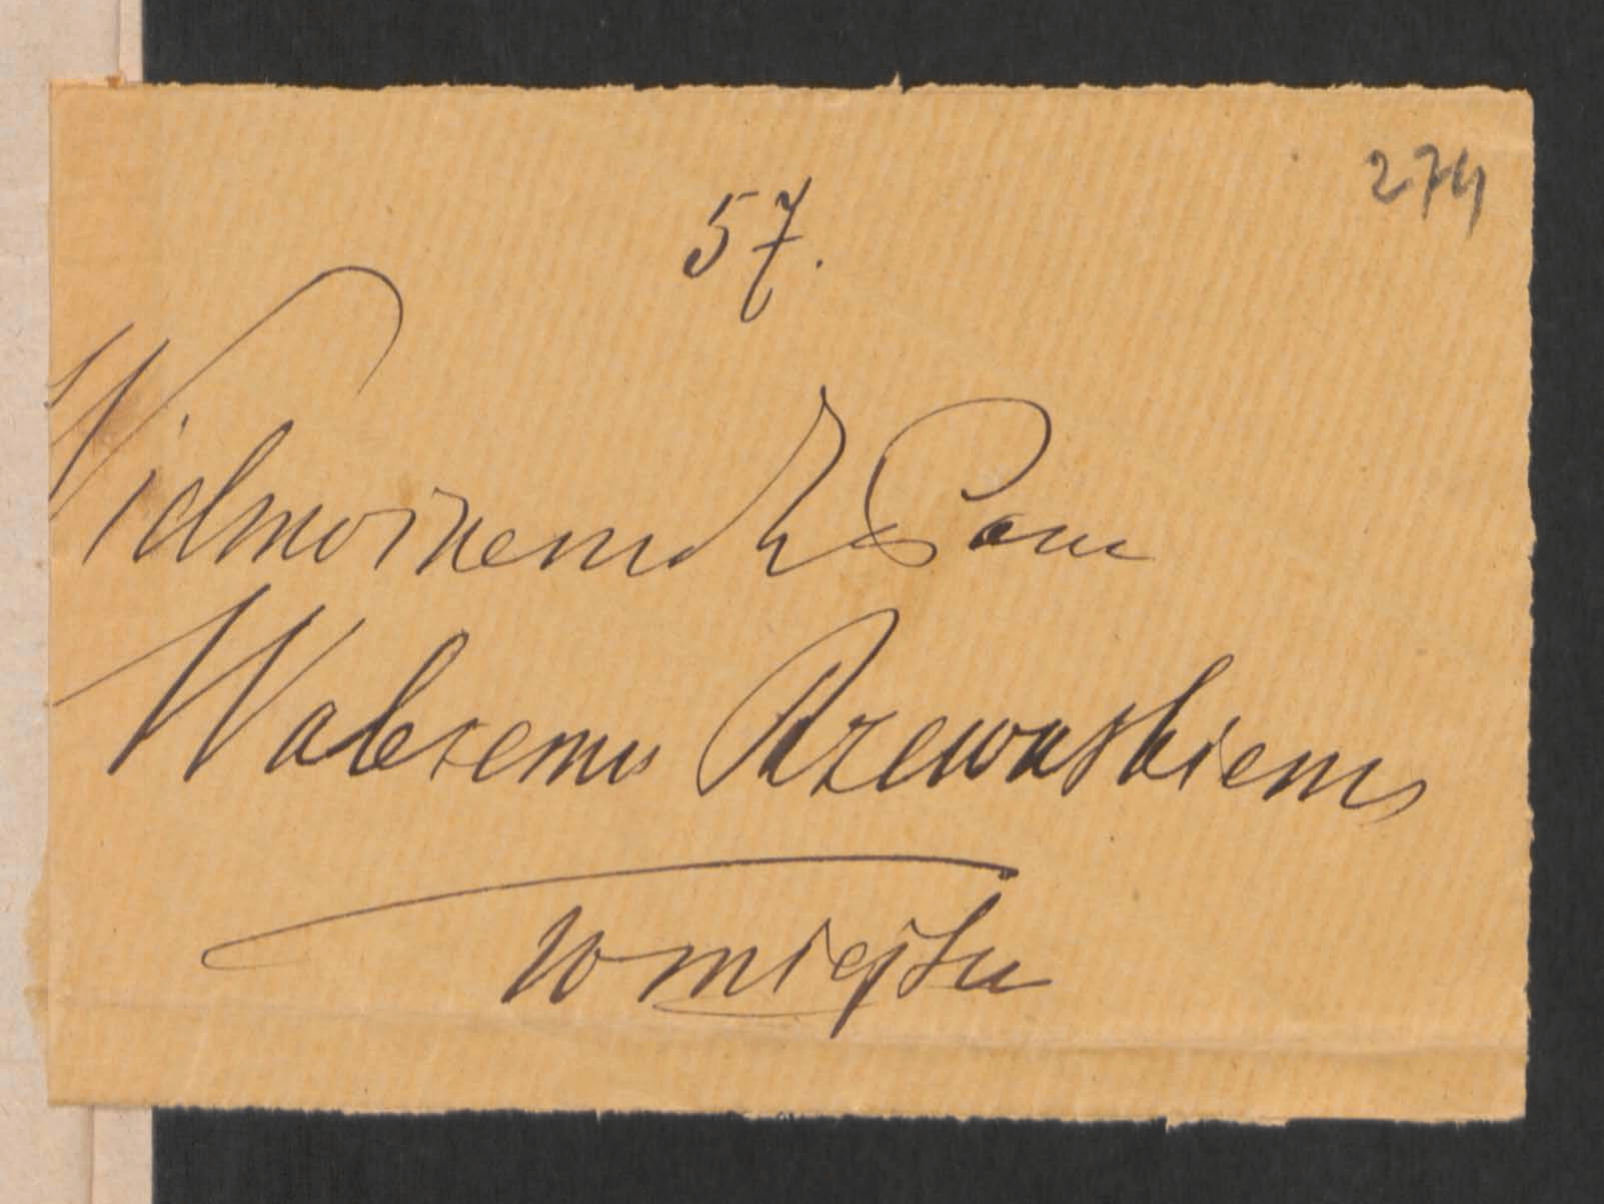 274
57.
Wielmożnemu Panu
Waleremu Rzewuskiemu
w miejscu